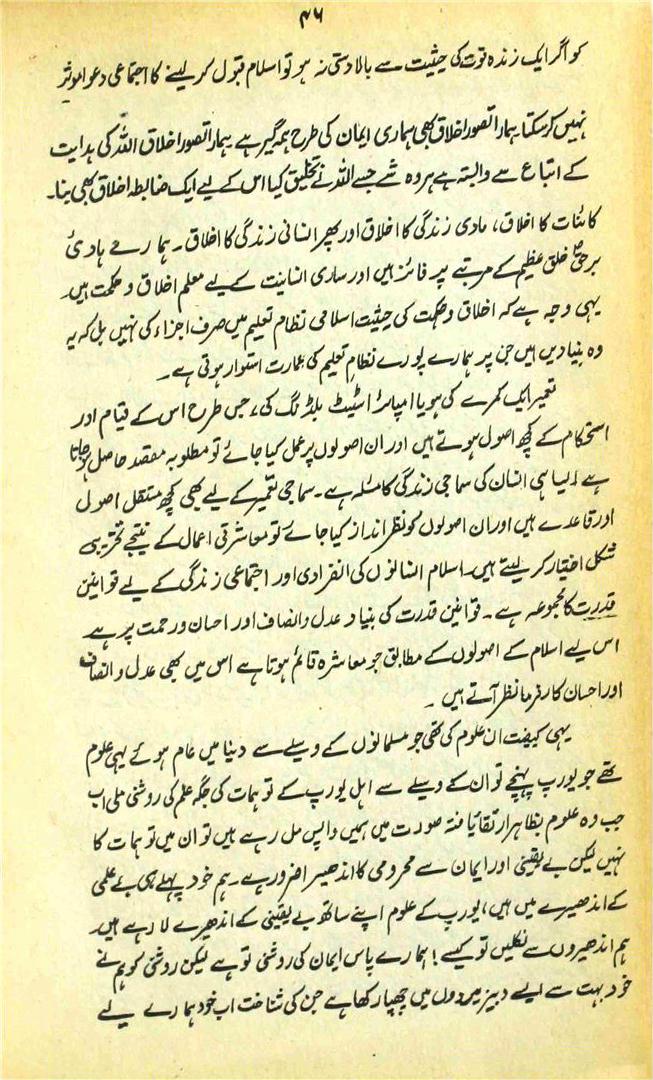 ۴۶
کو اگر ایک زندہ قوت کی حیثیت سے بالا دستی نہ ہو تو اسلام قبول کر لینے کا اجتماعی دعوا موثر
نہیں کر سکتا۔ ہمارا تصور اخلاق بھی ہماری ایمان کی طرح ہمہ گیر ہے ہمارا تصور اخلاق اللہ کی ہدایت
کے اتباع سے وابستہ ہے ہر وہ شے جسے اللہ نے تخلیق کیا اس کے لیے ایک ضابطہ اخلاق بھی بنا۔
کائنات کا اخلاق، مادی زندگی کا اخلاق اور پھر انسانی زندگی کا اخلاق۔ ہمارے ہادیٔ
برحقؐ خلق عظیم کے مرتبے پر فائز ہیں اور ساری انسانیت کے لیے معلم اخلاق و حکمت ہیں۔
یہی وجہ ہے کہ اخلاق و حکمت کی حیثیت اسلامی نظام تعلیم میں صرف اجزاء کی نہیں بل کہ یہ
وہ بنیادیں ہیں جن پر ہمارے پورے نظامِ تعلیم کی عمارت استوار ہوتی ہے۔
تعمیر ایک کمرے کی ہو یا امپائر اسٹیٹ بلڈنگ کی، جس طرح اس کے قیام اور
استحکام کے کچھ اصول ہوتے ہیں اور ان اصولوں پر عمل کیا جائے تو مطلوبہ مقصد حاصل ہو جاتا
ہے ایسا ہی انسان کی سماجی زندگی کا مسئلہ ہے۔ سماجی تعمیر کے لیے بھی کچھ مستقل اصول
اور قاعدے ہیں اور ان اصولوں کو نظر انداز کیا جائے تو معاشرتی اعمال کے نتیجے تخریبی
شکل اختیار کر لیتے ہیں۔ اسلام انسانوں کی انفرادی اور اجتماعی زندگی کے لیے قوانین
قدرت کا مجموعہ ہے۔ قوانین قدرت کی بنیاد عدل و انصاف اور احسان و رحمت پر ہے
اس لیے اسلام کے اصولوں کے مطابق جو معاشرہ قائم ہوتا ہے اس میں بھی عدل و انصاف
اور احسان کار فرما نظر آتے ہیں۔
یہی کیفیت ان علوم کی تھی جو مسلمانوں کے وسیلے سے دنیا میں عام ہوئے یہی علوم
تھے جو یورپ پہنچے تو ان کے وسیلے سے اہل یورپ کے توہمات کی جگہ علم کی روشنی ملی اب
جب وہ علوم بظاہر ارتقا یافتہ صورت میں ہمیں واپس مل رہے ہیں تو ان میں توہمات کا
نہیں لیکن بے یقینی اور ایمان سے محرومی کا اندھیرا ضرور ہے۔ ہم خود پہلے ہی بے علمی
کے اندھیرے میں ہیں، یورپ کے علوم اپنے ساتھ بے یقینی کے اندھیرے لا رہے ہیں۔
ہم اندھیروں سے نکلیں تو کیسے! ہمارے پاس ایمان کی روشنی تو ہے لیکن روشنی کو ہم نے
خود بہت سے ایسے دبیز پردوں میں چھپا رکھا ہے جن کی شناخت اب خود ہمارے لیے